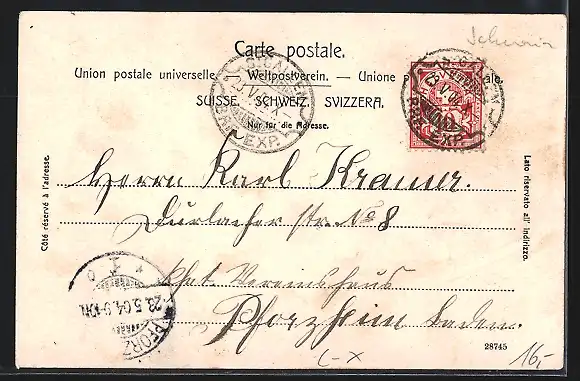 Schweiz
Carte postale.
Union postale universelle. — Weltpostverein. — Unione postale
SUISSE. SCHWEIZ. SVIZZERA.
Nur für die Adresse.
ST. GALLEN
BRF. EXP.
10
Côté réservé à l'adresse.
Lato riservato all' indirizzo.
Herrn Karl Kramer.
Durlacher str. No 8
Vereinshaus
Pforzheim Baden.
23.5.04. 9-10N.
PFORZ
28745
16,-